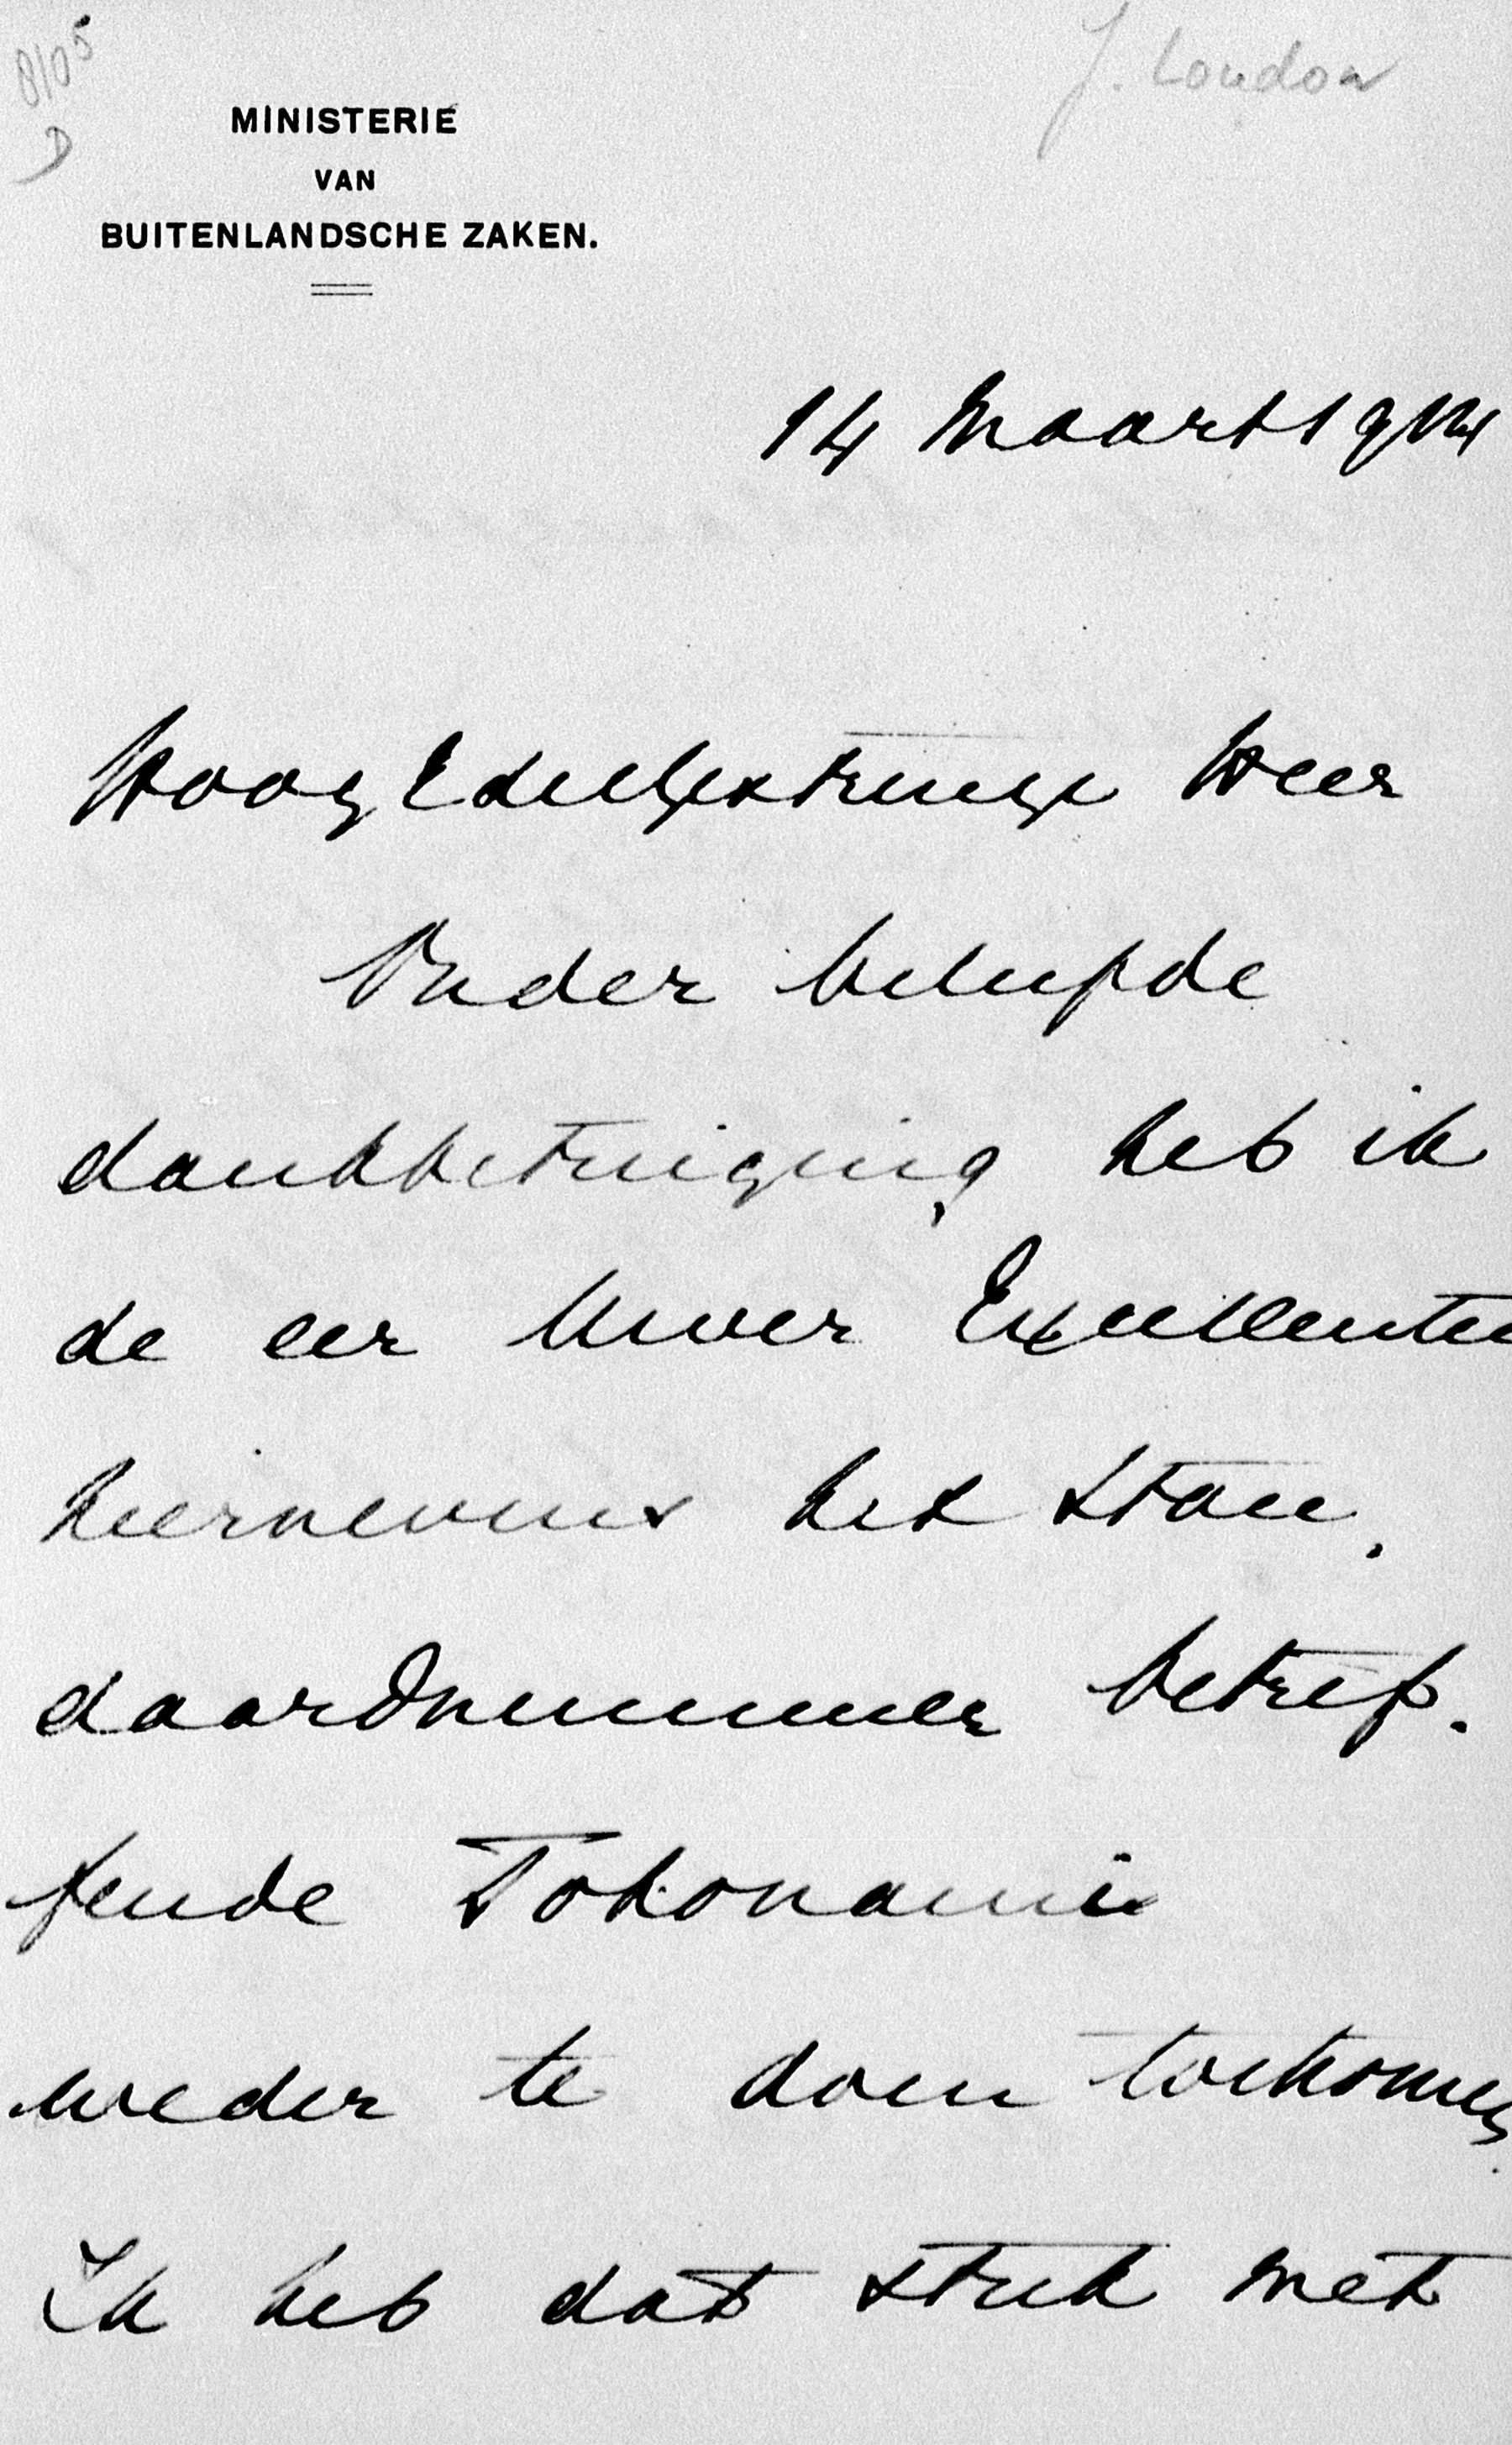 8105
D
J. Loudon
MINISTERIE
VAN
BUITENLANDSCHE ZAKEN.
14 Maart 1914
HoogEdelGestrenge Heer
Onder beleefde
dankbetuiging heb ik
de eer Uwer Excellentie
hiernevens het Stan„
daardnummer betref„
fende Tokonami
weder te doen toekomen.
Ik heb dat stuk met